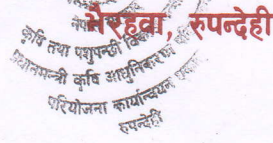 भैरहवा, रुपन्देही
कृषि तथा पशुपन्छी
प्रधानमन्त्री कृषि आधुनिकरण
परियोजना कार्यान्वयन
रुपन्देही